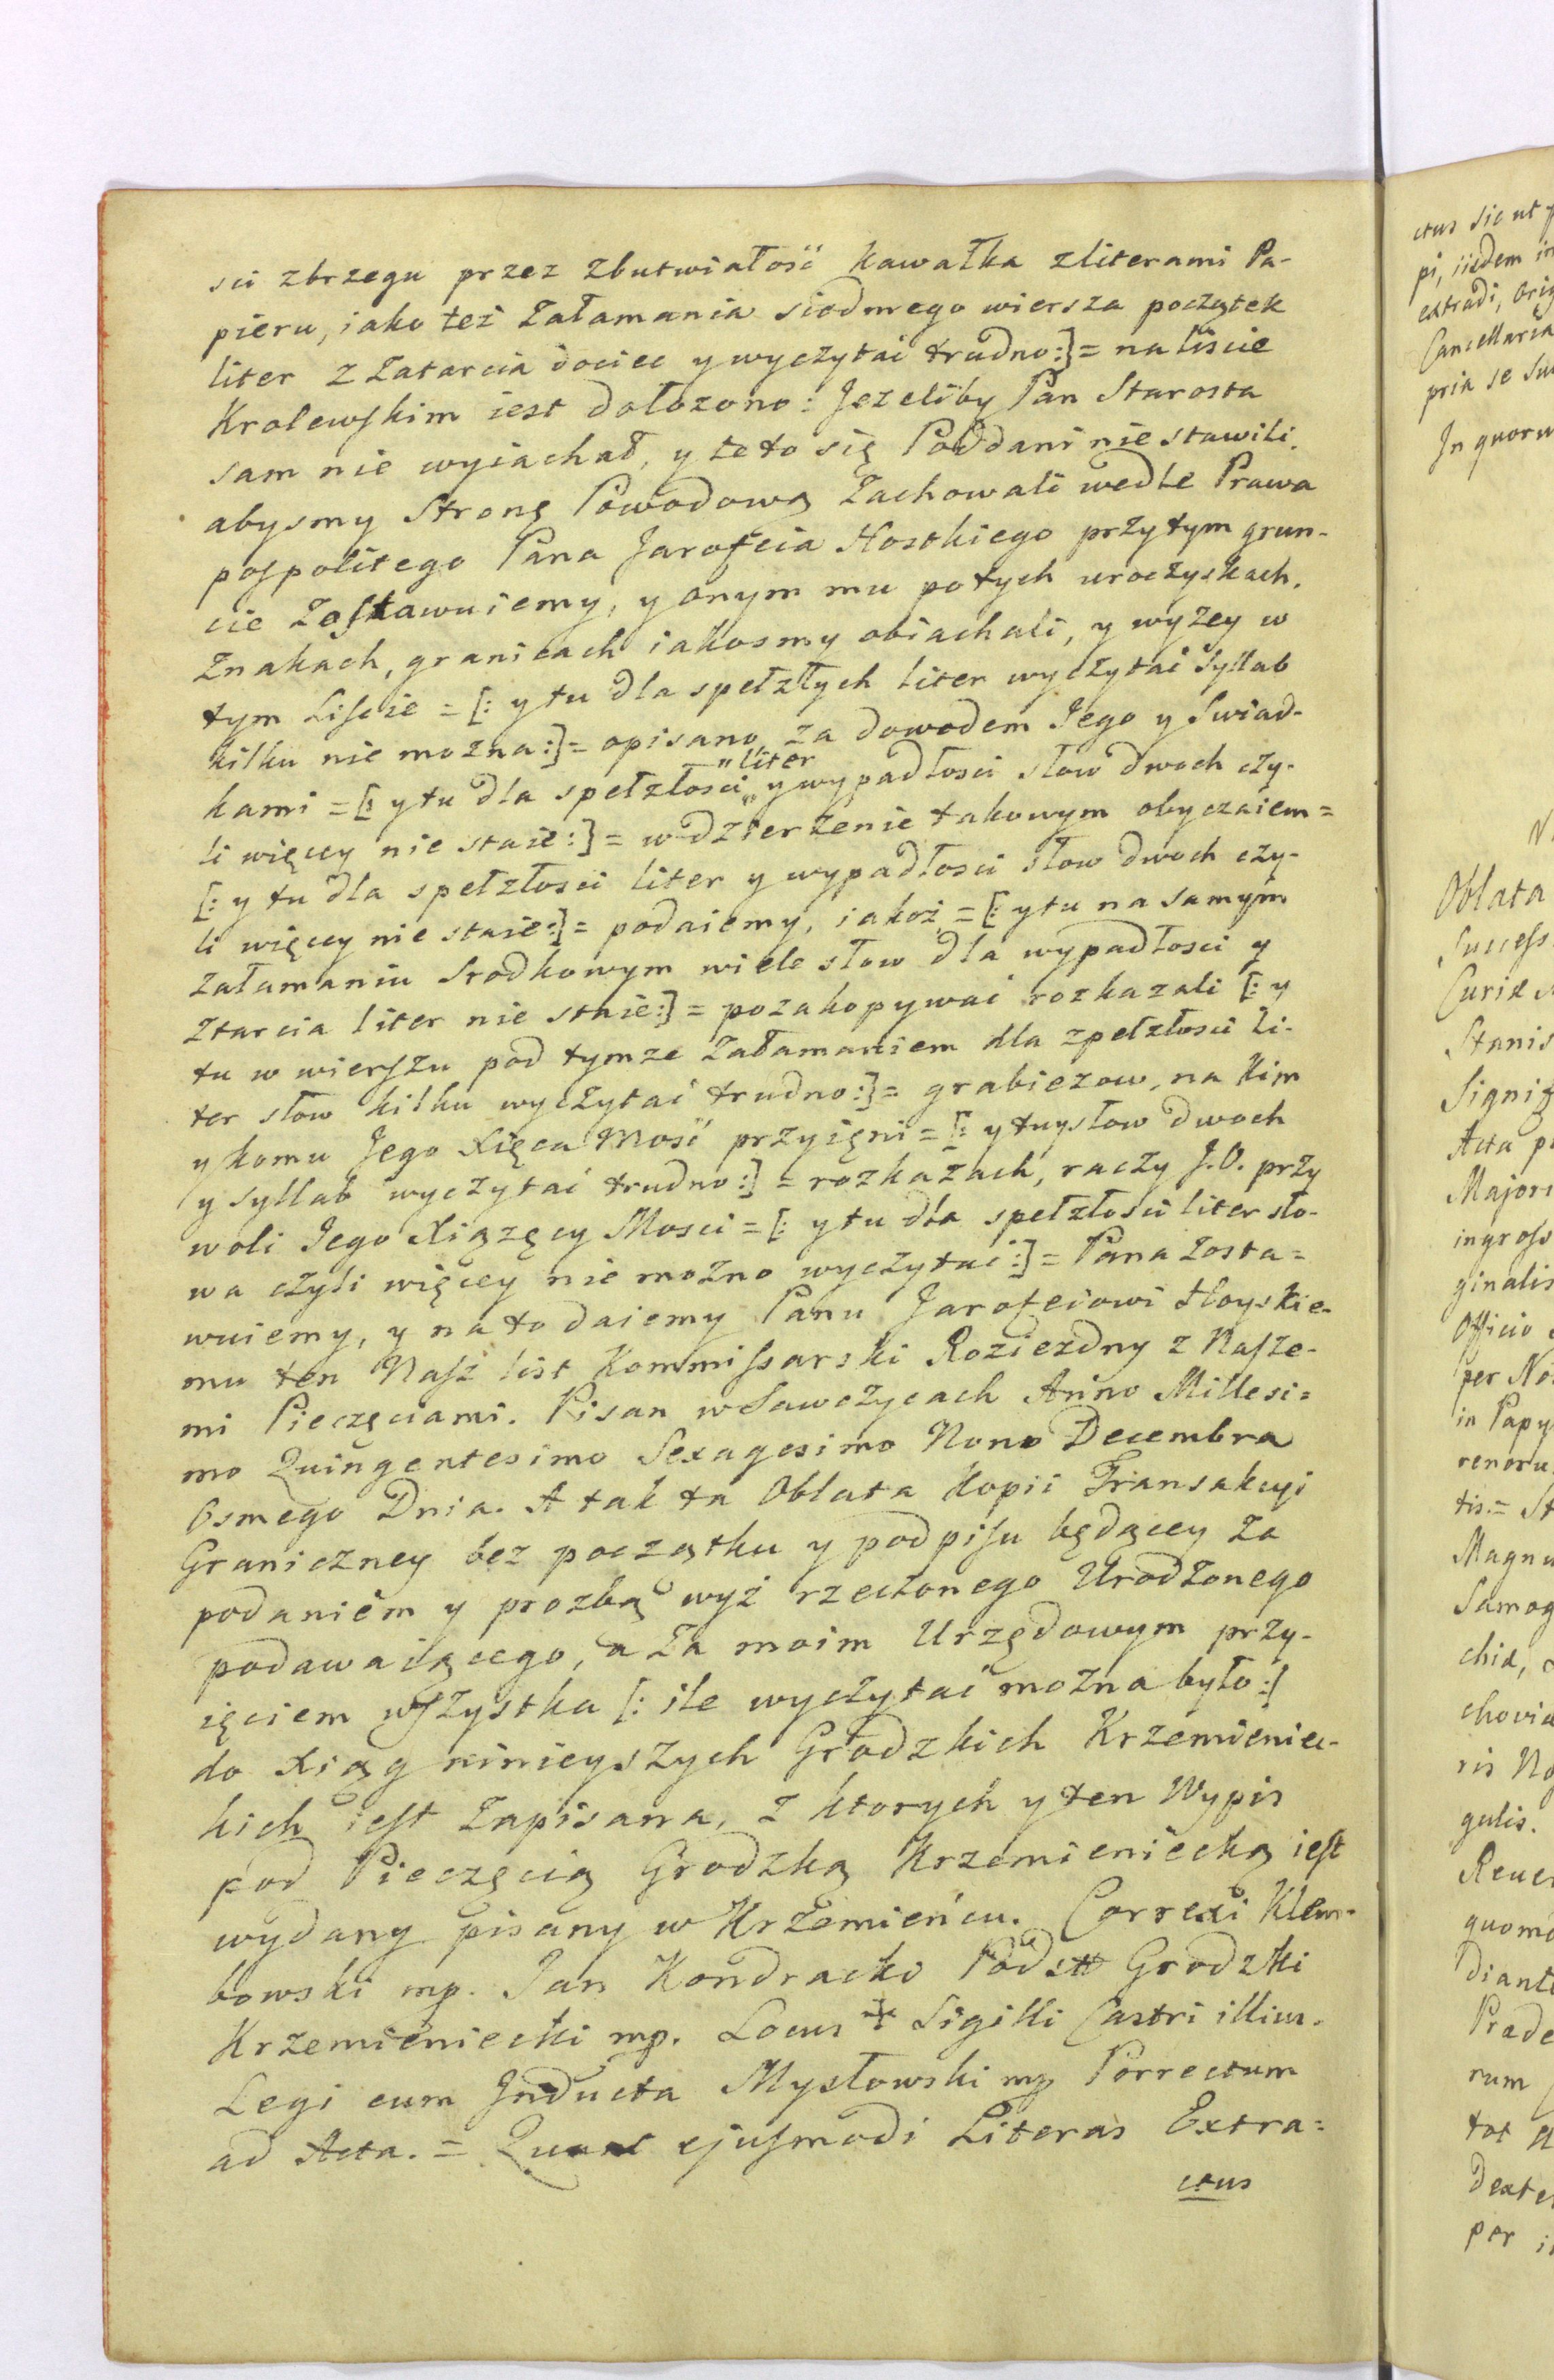 sci zbrzegu przez zbutwiałość kawałka zliterami Pa-
pieru, iako też załamania siodmego wiersza początek
liter z zatarcia dociec y wyczytać trudno:]= na liscie
Krolewskim iest dołozono: Jezeliby Pan Starosta
sam nie wyiachał, y te to się Poddani nie stawili.
abysmy Stronę Powodową zachowali wedle Prawa
pospolitego Pana Jarofeia Hostkiego przytym grun-
cie zostawuiemy, y onym mu potych uroczyskach.
znakach, granicach iakosmy obiachali, y wyzey w
tym Liscie = [: y tu dla spełzłych liter wyczytać Syllab
kilku nie mozna:]= opisano za dowodem Jego y Swiad-
kami = [: y tu dla spełzłosci „liter„ y wypadłosci słow dwoch czy-
li więcey nie staie:] = w dzierzenie takowym obyczaiem =
[: y tu dla spełzłosci liter y wypadłosci słow dwoch czy-
li więcey nie staie:]= podaiemy, iakoż = [: y tu na samym
załamaniu Srodkowym wiele słow dla wypadłosci y
ztarcia liter nie staie:]= pozakopywać rozkazali [: y
tu w wierszu pod tymze załamaniem dla zpełzłosci li-
ter słow kilku wyczytać trudno:]= grabiezow, na kim
y komu Jego Xięca Mość przyięni = [: y tu słow dwoch
y syllab wyczytać trudno:] = rozkazach, raczy J.O. przy
woli Jego Xiązęcy Mosci = [: y tu dla spełzłosci liter sło-
wa czyli więcey nie mozno wyczytać:]= Pana zosta=
wuiemy, y na to daiemy Panu Jarofeiowi
mu ten Nasz list Kommissarski Rozieżdny z Nasze-
mi Pieczęciami. Pisan w Sawczycach Anno Millesi=
mo Quingentesimo Sexagesimo Nono Decembra
Osmego Dnia. A tak ta Oblata Kopii Transakcyi
Graniczney bez początku y podpisu będącey za
podaniem y prozbą wyż rzeczonego Urodzonego
podawaiącego, a za moim Urzędowym przy-
ięciem wszystka [: ile wyczytać mozna było:]
do Xiąg ninieyszych Grodzkich Krzemieniec-
kich iest zapisana, z ktorych y ten Wypis
pod Pieczęcią Grodzką Krzemieniecką iest
wydany pisany w Krzemieńcu. Correxi Klem-
bowski mp. Jan Kondracki Podstt Grodzki
Krzemieniecki mp. Locus Sigilli Castri illius.
Legi cum Inducta Mysłowski mp Porrectum
ad Acta. = ejusmodi Literas Extra=
ctus
ctus sic ut
pi, iidem in
extradi, Orig
Cancellaria
pria se
In quoru
N.
Oblata
Success
Curiæ
Stanis
Acta p
Majori
ingross
ginalis
Officio
per
in Papy
renoru
tis. = St
Magnu
Samog
chiæ,
chovia
ris No
gulis.
quomo
diant
Præde
rum
tot
dexte
per i